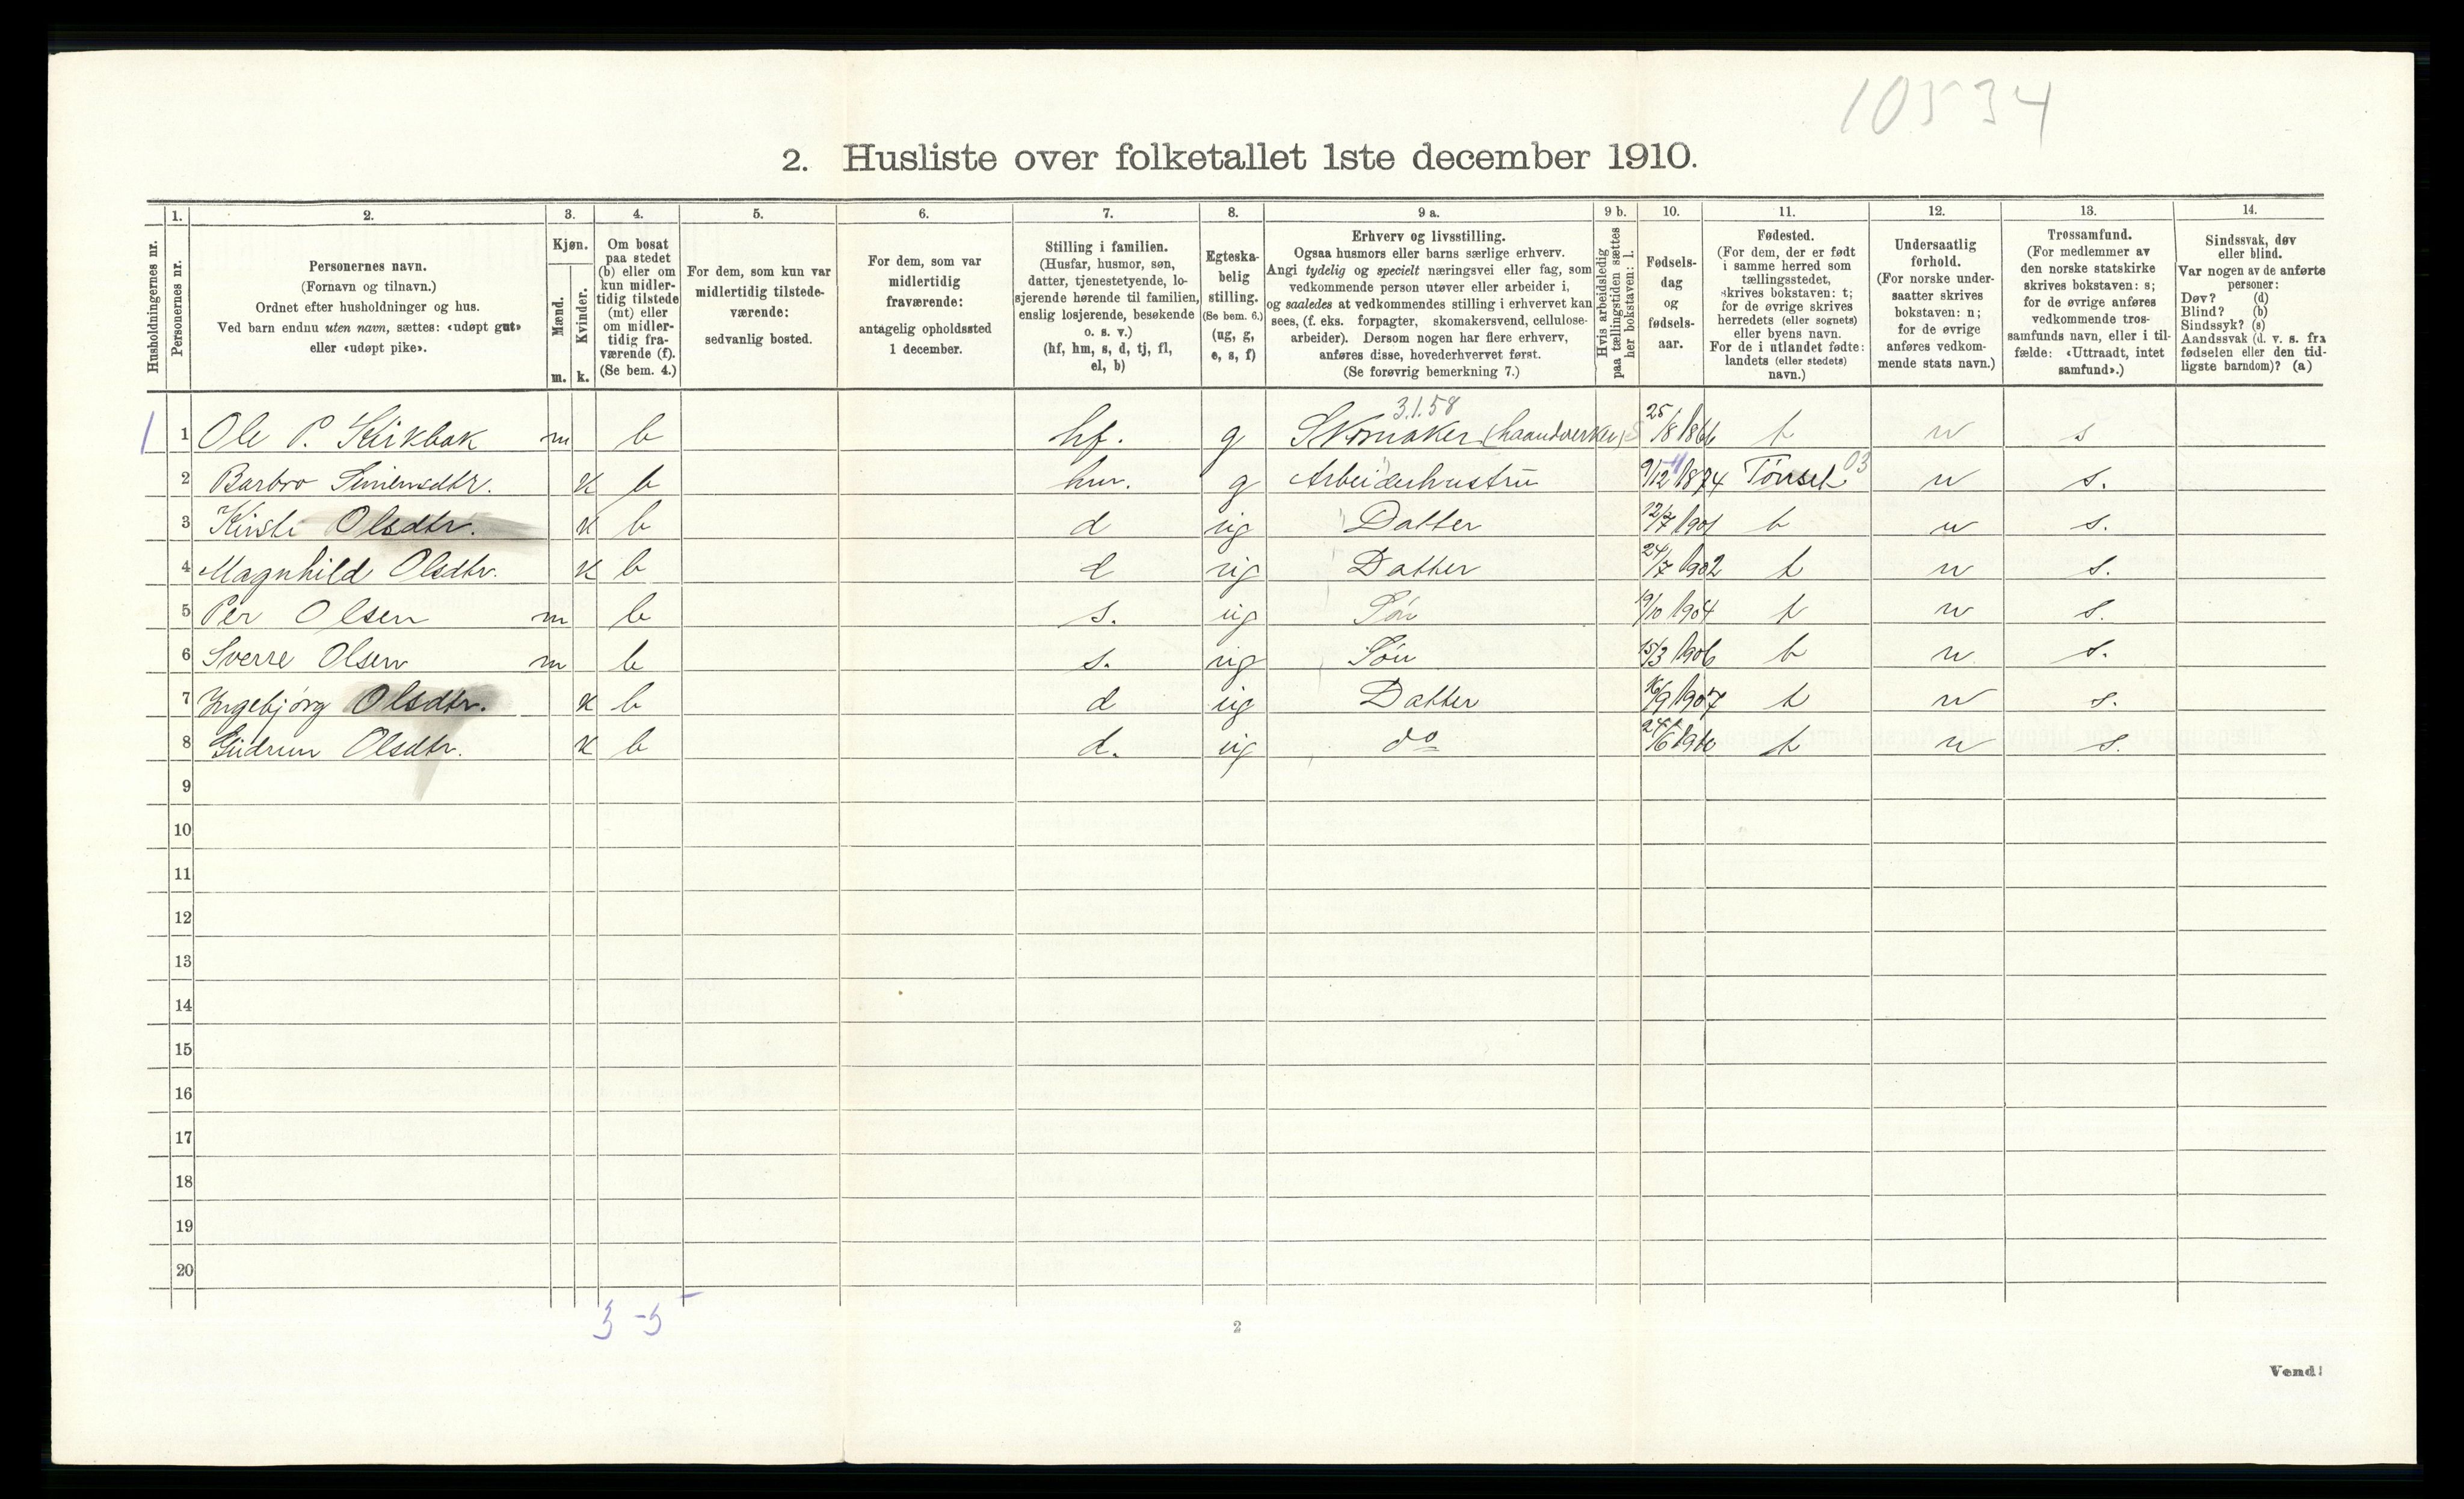 10534
2. Husliste over folketallet 1ste december 1910.
1. 2. 3. 4. 5. 6. 7. 8. 9 a. 9 b. 10. 11. 12. 13. 14.
Husholdningernes nr.
Personernes nr.
Personernes navn.
(Fornavn og tilnavn.)
Ordnet efter husholdninger og hus.
Ved barn endnu uten navn, sættes: «udøpt gut»
eller «udøpt pike».
Kjøn.
Mænd.
Kvinder.
m. k.
Om bosat
paa stedet
(b) eller om
kun midler-
tidig tilstede
(mt) eller
om midler-
tidig fra-
værende (f).
(Se bem. 4.)
For dem, som kun var
midlertidig tilstede-
værende:
sedvanlig bosted.
For dem, som var
midlertidig
fraværende:
antagelig opholdssted
1 december.
Stilling i familien.
(Husfar, husmor, søn,
datter, tjenestetyende, lo-
sjerende hørende til familien,
enslig losjerende, besøkende
o. s. v.)
(hf, hm, s, d, tj, fl,
el, b)
Egteska-
belig
stilling.
(Se bem. 6.)
(ug, g,
e, s, f)
Erhverv og livsstilling.
Ogsaa husmors eller barns særlige erhverv.
Angi tydelig og specielt næringsvei eller fag, som
vedkommende person utøver eller arbeider i,
og saaledes at vedkommendes stilling i erhvervet kan
sees, (f. eks. forpagter, skomakersvend, cellulose-
arbeider). Dersom nogen har flere erhverv,
anføres disse, hovederhvervet først.
(Se forøvrig bemerkning 7.)
Hvis arbeidsledig
paa tællingstiden sættes
her bokstaven: l.
Fødsels-
dag
og
fødsels-
aar.
Fødested.
(For dem, der er født
i samme herred som
tællingsstedet,
skrives bokstaven: t;
for de øvrige skrives
herredets (eller sognets)
eller byens navn.
For de i utlandet fødte:
landets (eller stedets)
navn.)
Undersaatlig
forhold.
(For norske under-
saatter skrives
bokstaven: n;
for de øvrige
anføres vedkom-
mende stats navn.)
Trossamfund.
(For medlemmer av
den norske statskirke
skrives bokstaven: s;
for de øvrige anføres
vedkommende tros-
samfunds navn, eller i til-
fælde: «Uttraadt, intet
samfund».)
Sindssvak, døv
eller blind.
Var nogen av de anførte
personer:
Døv? (d)
Blind? (b)
Sindssyk? (s)
Aandssvak (d. v. s. fra
fødselen eller den tid-
ligste barndom)? (a)
3.1.58
1 1 Ole P. Kirkbak m b hf. g Skomaker (haandverker) 25/8 1866 t n s
2 Barbro Simensdtr. k b hm. g Arbeiderhustru 9/12 1874 Tønset 03 n s.
3 Kirsti Olsdtr. k b d ug Datter 12/7 1901 t n s.
4 Magnhild Olsdtr. k b d ug Datter 24/7 1902 t n s.
5 Per Olsen m b s. ug Søn 19/10 1904 t n s.
6 Sverre Olsen m b s. ug Søn 15/3 1906 t n s.
7 Ingebjørg Olsdtr. k b d ug Datter 16/9 1907 t n s.
8 Gudrun Olsdtr. k b d. ug do 24/6 1910 t n s.
9
10
11
12
13
14
15
16
17
18
19
20
3 - 5
2
Vend!